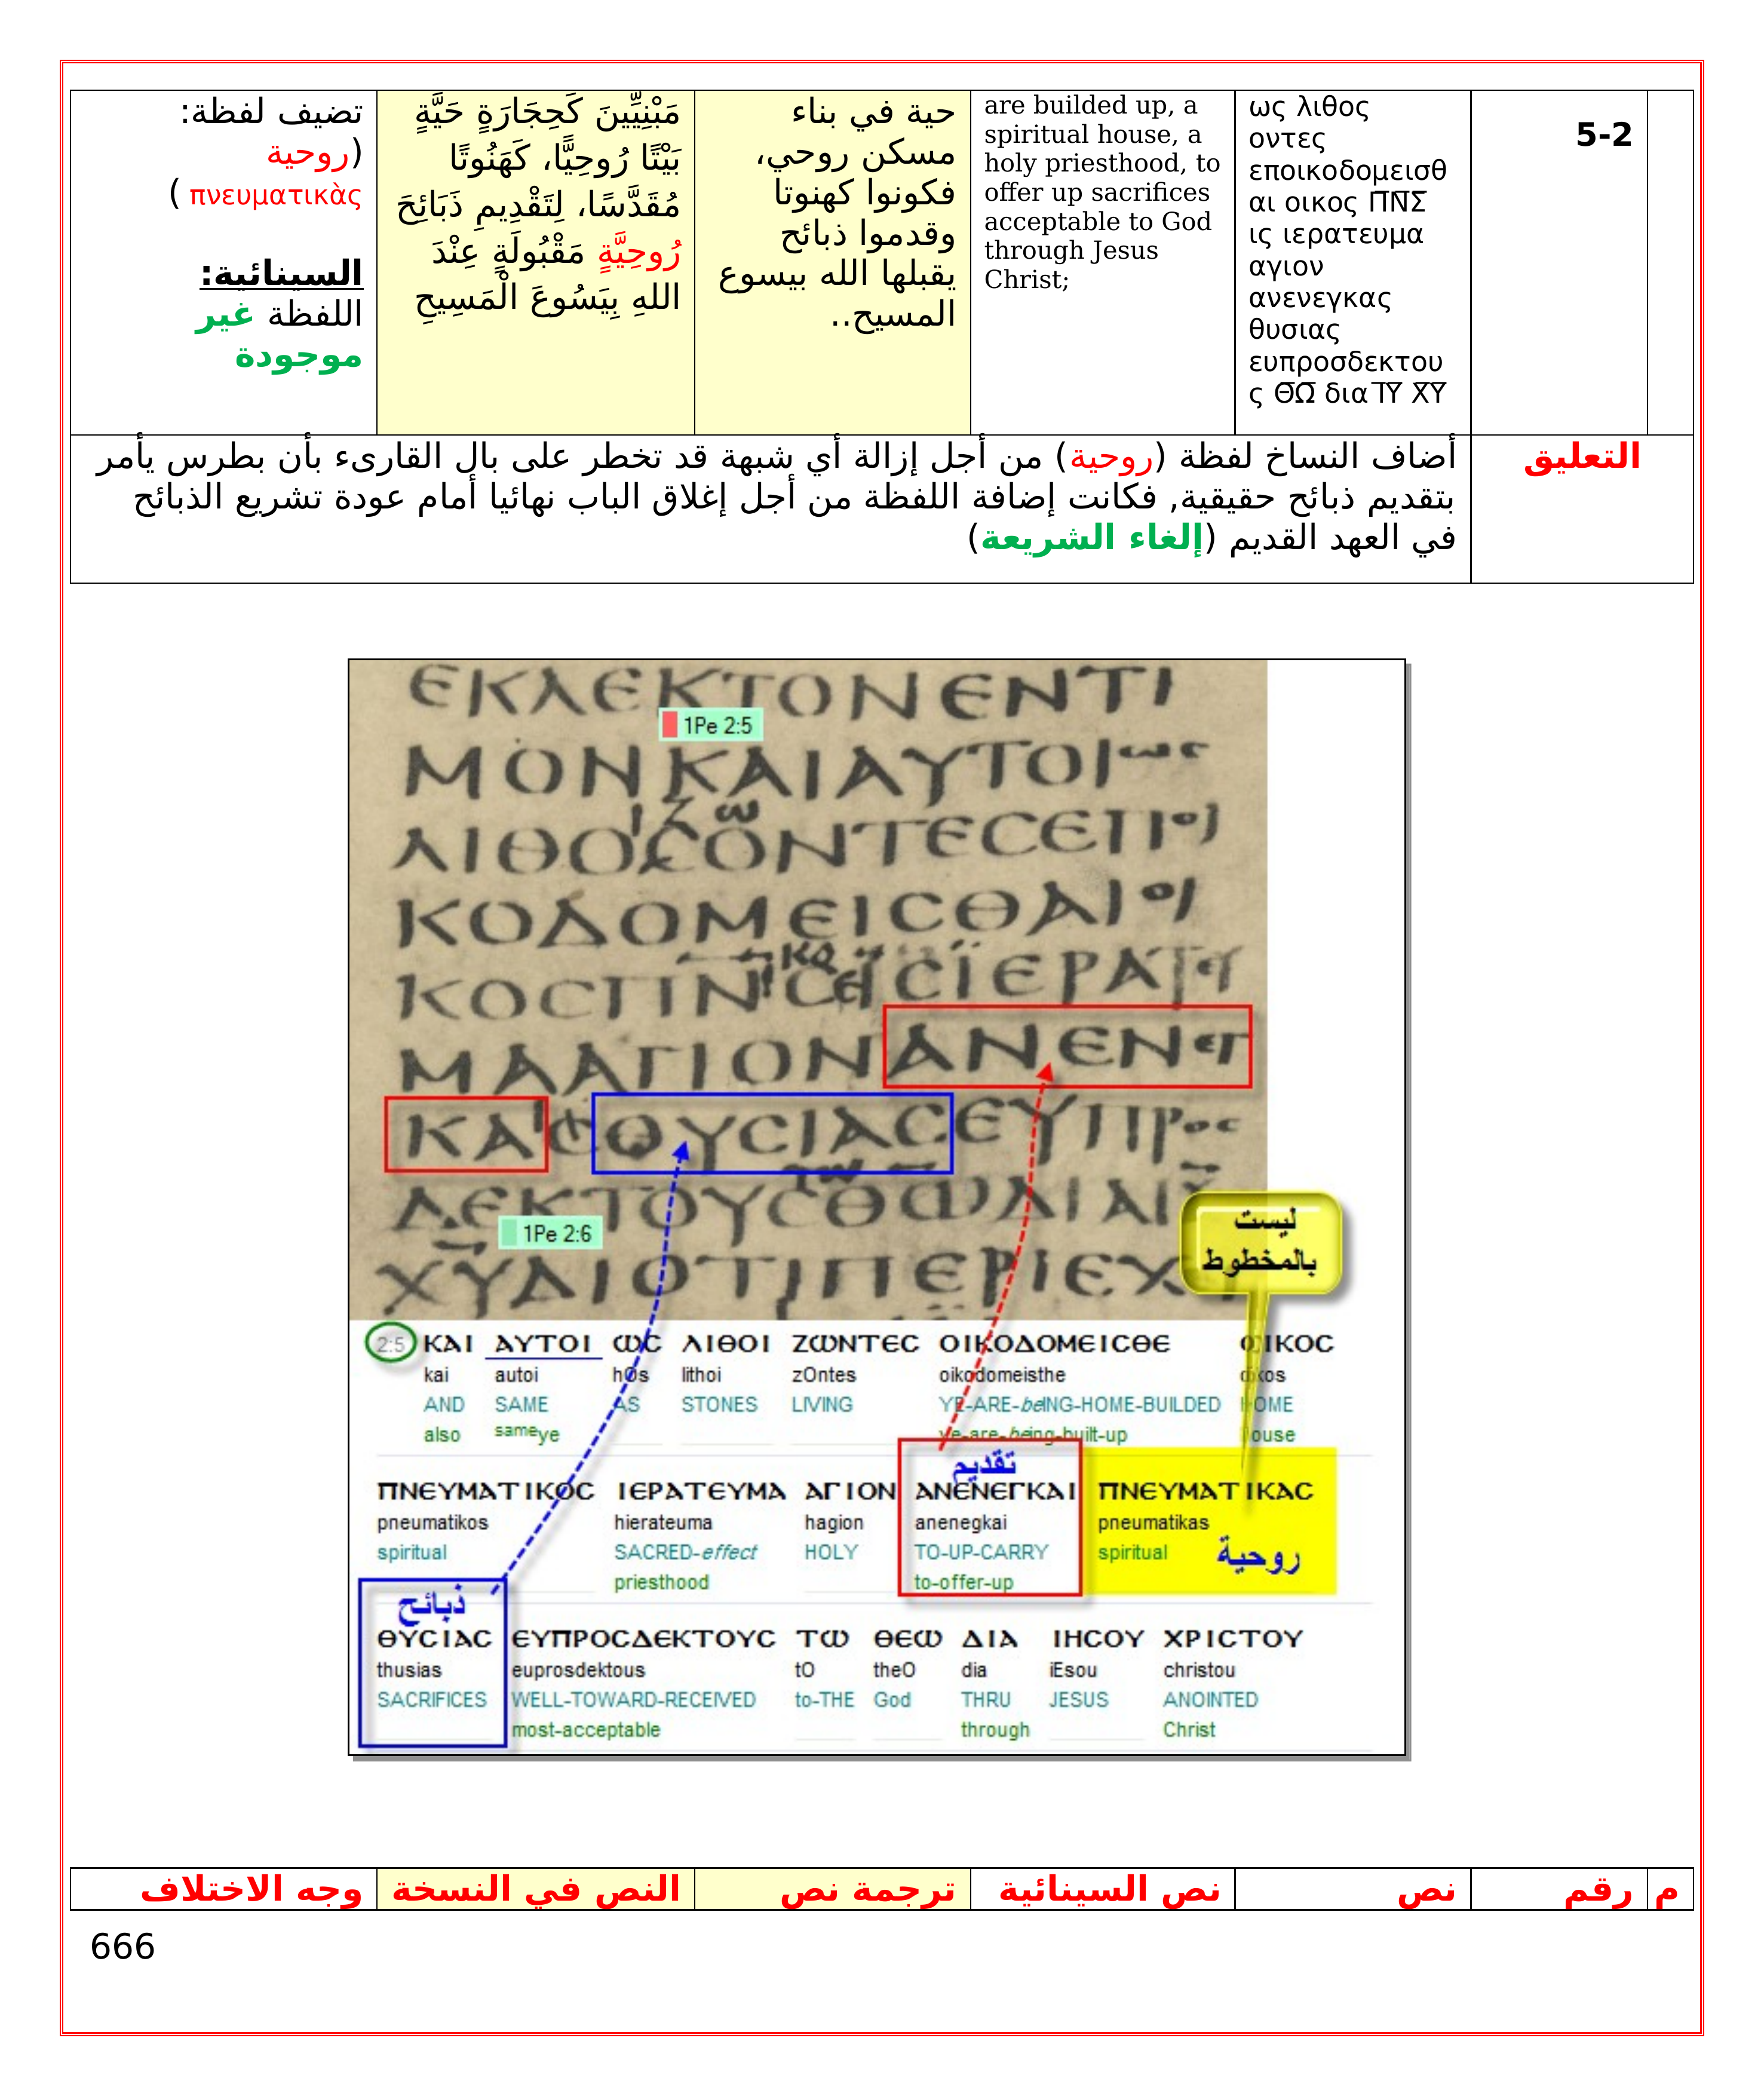 5-2
ως λιθος
οντες
εποικοδομεισθ
αι οικος Π̅Ν̅Σ̅
ις ιερατευμα
αγιον
ανενεγκας
θυσιας
ευπροσδεκτου
ς Θ̅Ω̅ δια Ι̅Υ̅ Χ̅Υ̅
are builded up, a
spiritual house, a
holy priesthood, to
offer up sacrifices
acceptable to God
through Jesus
Christ;
حية في بناء
مسكن روحي،
فكونوا كهنوتا
وقدموا ذبائح
يقبلها الله بيسوع
المسيح..
مَبْنِيِّينَ كَحِجَارَةٍ حَيَّةٍ
بَيْتًا رُوحِيًّا، كَهَنُوتًا
مُقَدَّسًا، لِتَقْدِيمِ ذَبَائِحَ
رُوحِيَّةٍ مَقْبُولَةٍ عِنْدَ
اللهِ بِيَسُوعَ الْمَسِيحِ
تضيف لفظة:
(روحية
πνευματικὰς )
السينائية:
اللفظة غير
موجودة
التعليق
أضاف النساخ لفظة (روحية) من أجل إزالة أي شبهة قد تخطر على بال القارىء بأن بطرس يأمر
بتقديم ذبائح حقيقية, فكانت إضافة اللفظة من أجل إغلاق الباب نهائيا أمام عودة تشريع الذبائح
في العهد القديم (إلغاء الشريعة)
ΕΚΛΕΚΤΟΝΕΝΤΙ
1Pe 2:5
ΜΟΝΚΑΙΑΥΤΟΙωϲ
ΛΙΘΟϹΟΝΤΕϹΕΠΟΙ
ΚΟΔΟΜΕΙϹΘΑΙΟΙ
ΚΟϹΠΝϹΙϹΪΕΡΑΤΕΥ
ΜΑΑΓΙΟΝΑΝΕΝΕΓ
ΚΑϹΘΥϹΙΑϹΕΥΠΡΟϹ
ΔΕΚΤΟΥϹΘΩΔΙΑΙΥ
1Pe 2:6
ΧΥΔΙΟΤΙΠΕΡΙΕΧΕΙ
ليست
بالمخطوط
2:5 ΚΑΙ ΑΥΤΟΙ ΩϹ ΛΙΘΟΙ ΖΩΝΤΕϹ ΟΙΚΟΔΟΜΕΙϹΘΕ ΟΙΚΟϹ
kai autoi hOs lithoi zOntes oikodomeisthe oikos
AND SAME AS STONES LIVING YE-ARE-beING-HOME-BUILDED HOME
also sameye ye-are-being-built-up house
تقديم
ΠΝΕΥΜΑΤΙΚΟϹ ΙΕΡΑΤΕΥΜΑ ΑΓΙΟΝ ΑΝΕΝΕΓΚΑΙ ΠΝΕΥΜΑΤΙΚΑϹ
pneumatikos hierateuma hagion anenegkai pneumatikas
spiritual SACRED-effect HOLY TO-UP-CARRY spiritual روحية
priesthood to-offer-up
ذبائح
ΘΥϹΙΑϹ ΕΥΠΡΟϹΔΕΚΤΟΥϹ ΤΩ ΘΕΩ ΔΙΑ ΙΗϹΟΥ ΧΡΙϹΤΟΥ
thusias euprosdektous tO theO dia iEsou christou
SACRIFICES WELL-TOWARD-RECEIVED to-THE God THRU JESUS ANOINTED
most-acceptable through Christ
م رقم نص نص السينائية ترجمة نص النص في النسخة وجه الاختلاف
666